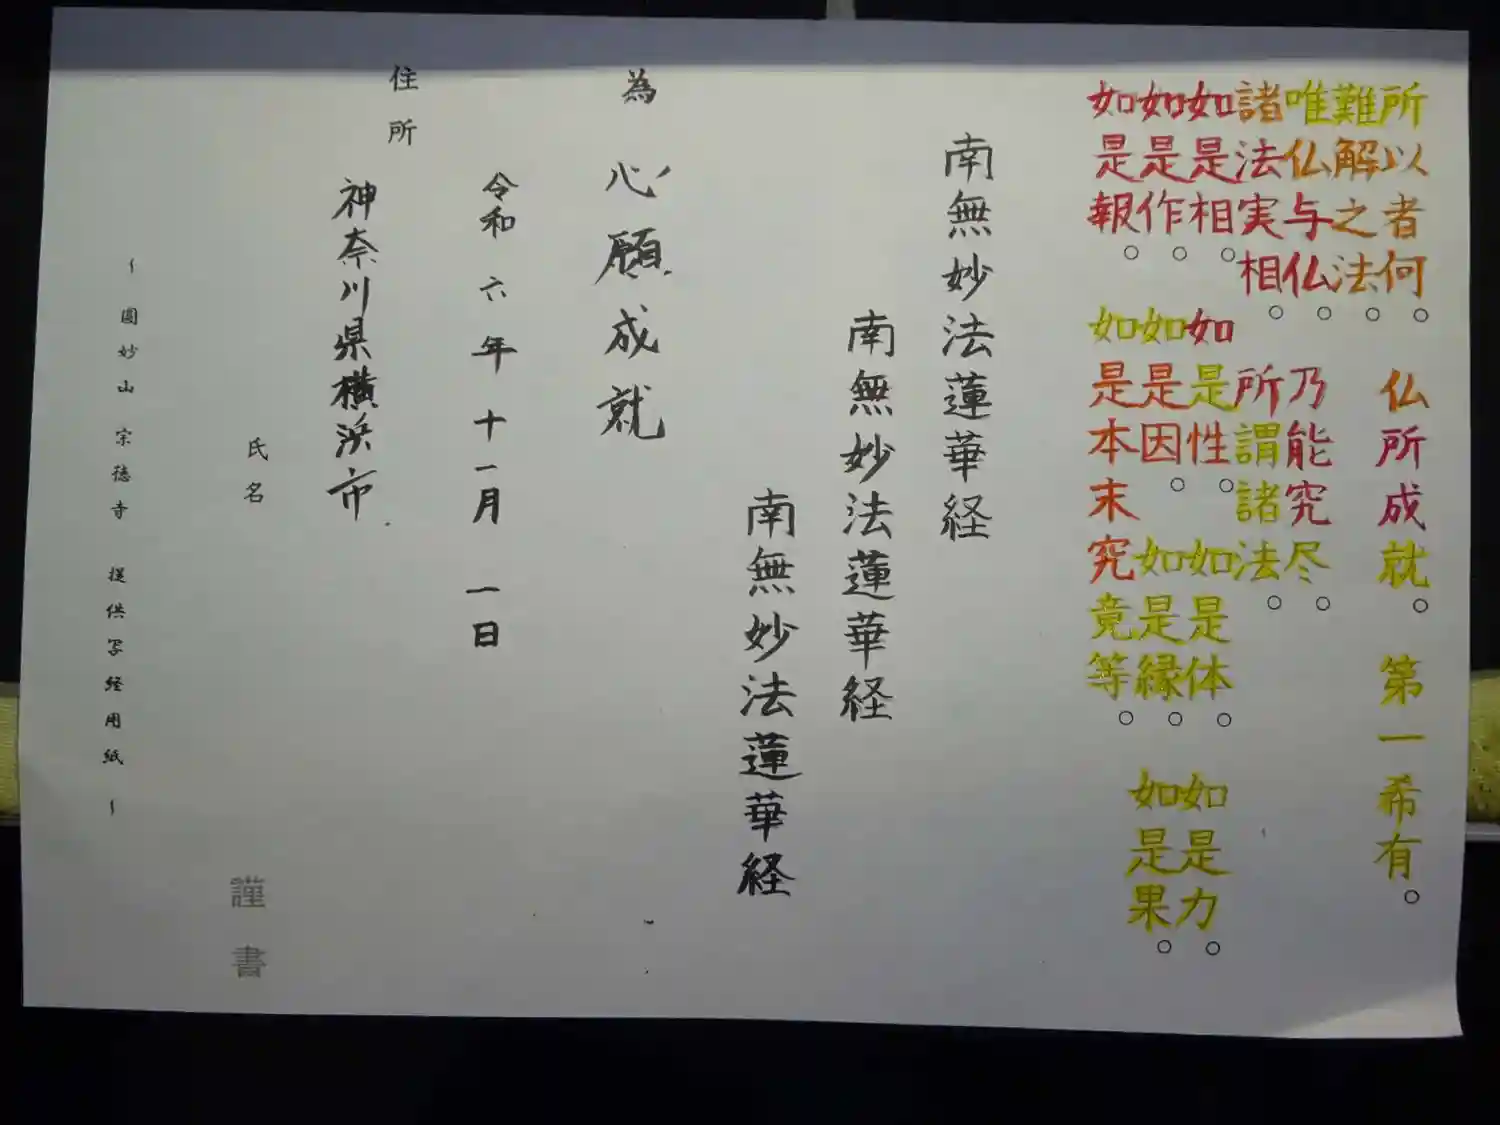 所以者何。　仏所成就。　第一希有。
難解之法。
唯仏与仏。　乃能究尽。
諸法実相。　所謂諸法。
如是相。　如是性。　如是体。　如是力。
如是作。　如是因。　如是縁。　如是果。
如是報。　如是本末究竟等。
南無妙法蓮華経
南無妙法蓮華経
南無妙法蓮華経
為　心願成就
令和六年十一月一日
住所　神奈川県横浜市
氏名　謹書
～圓妙山　宗徳寺　提供写経用紙～